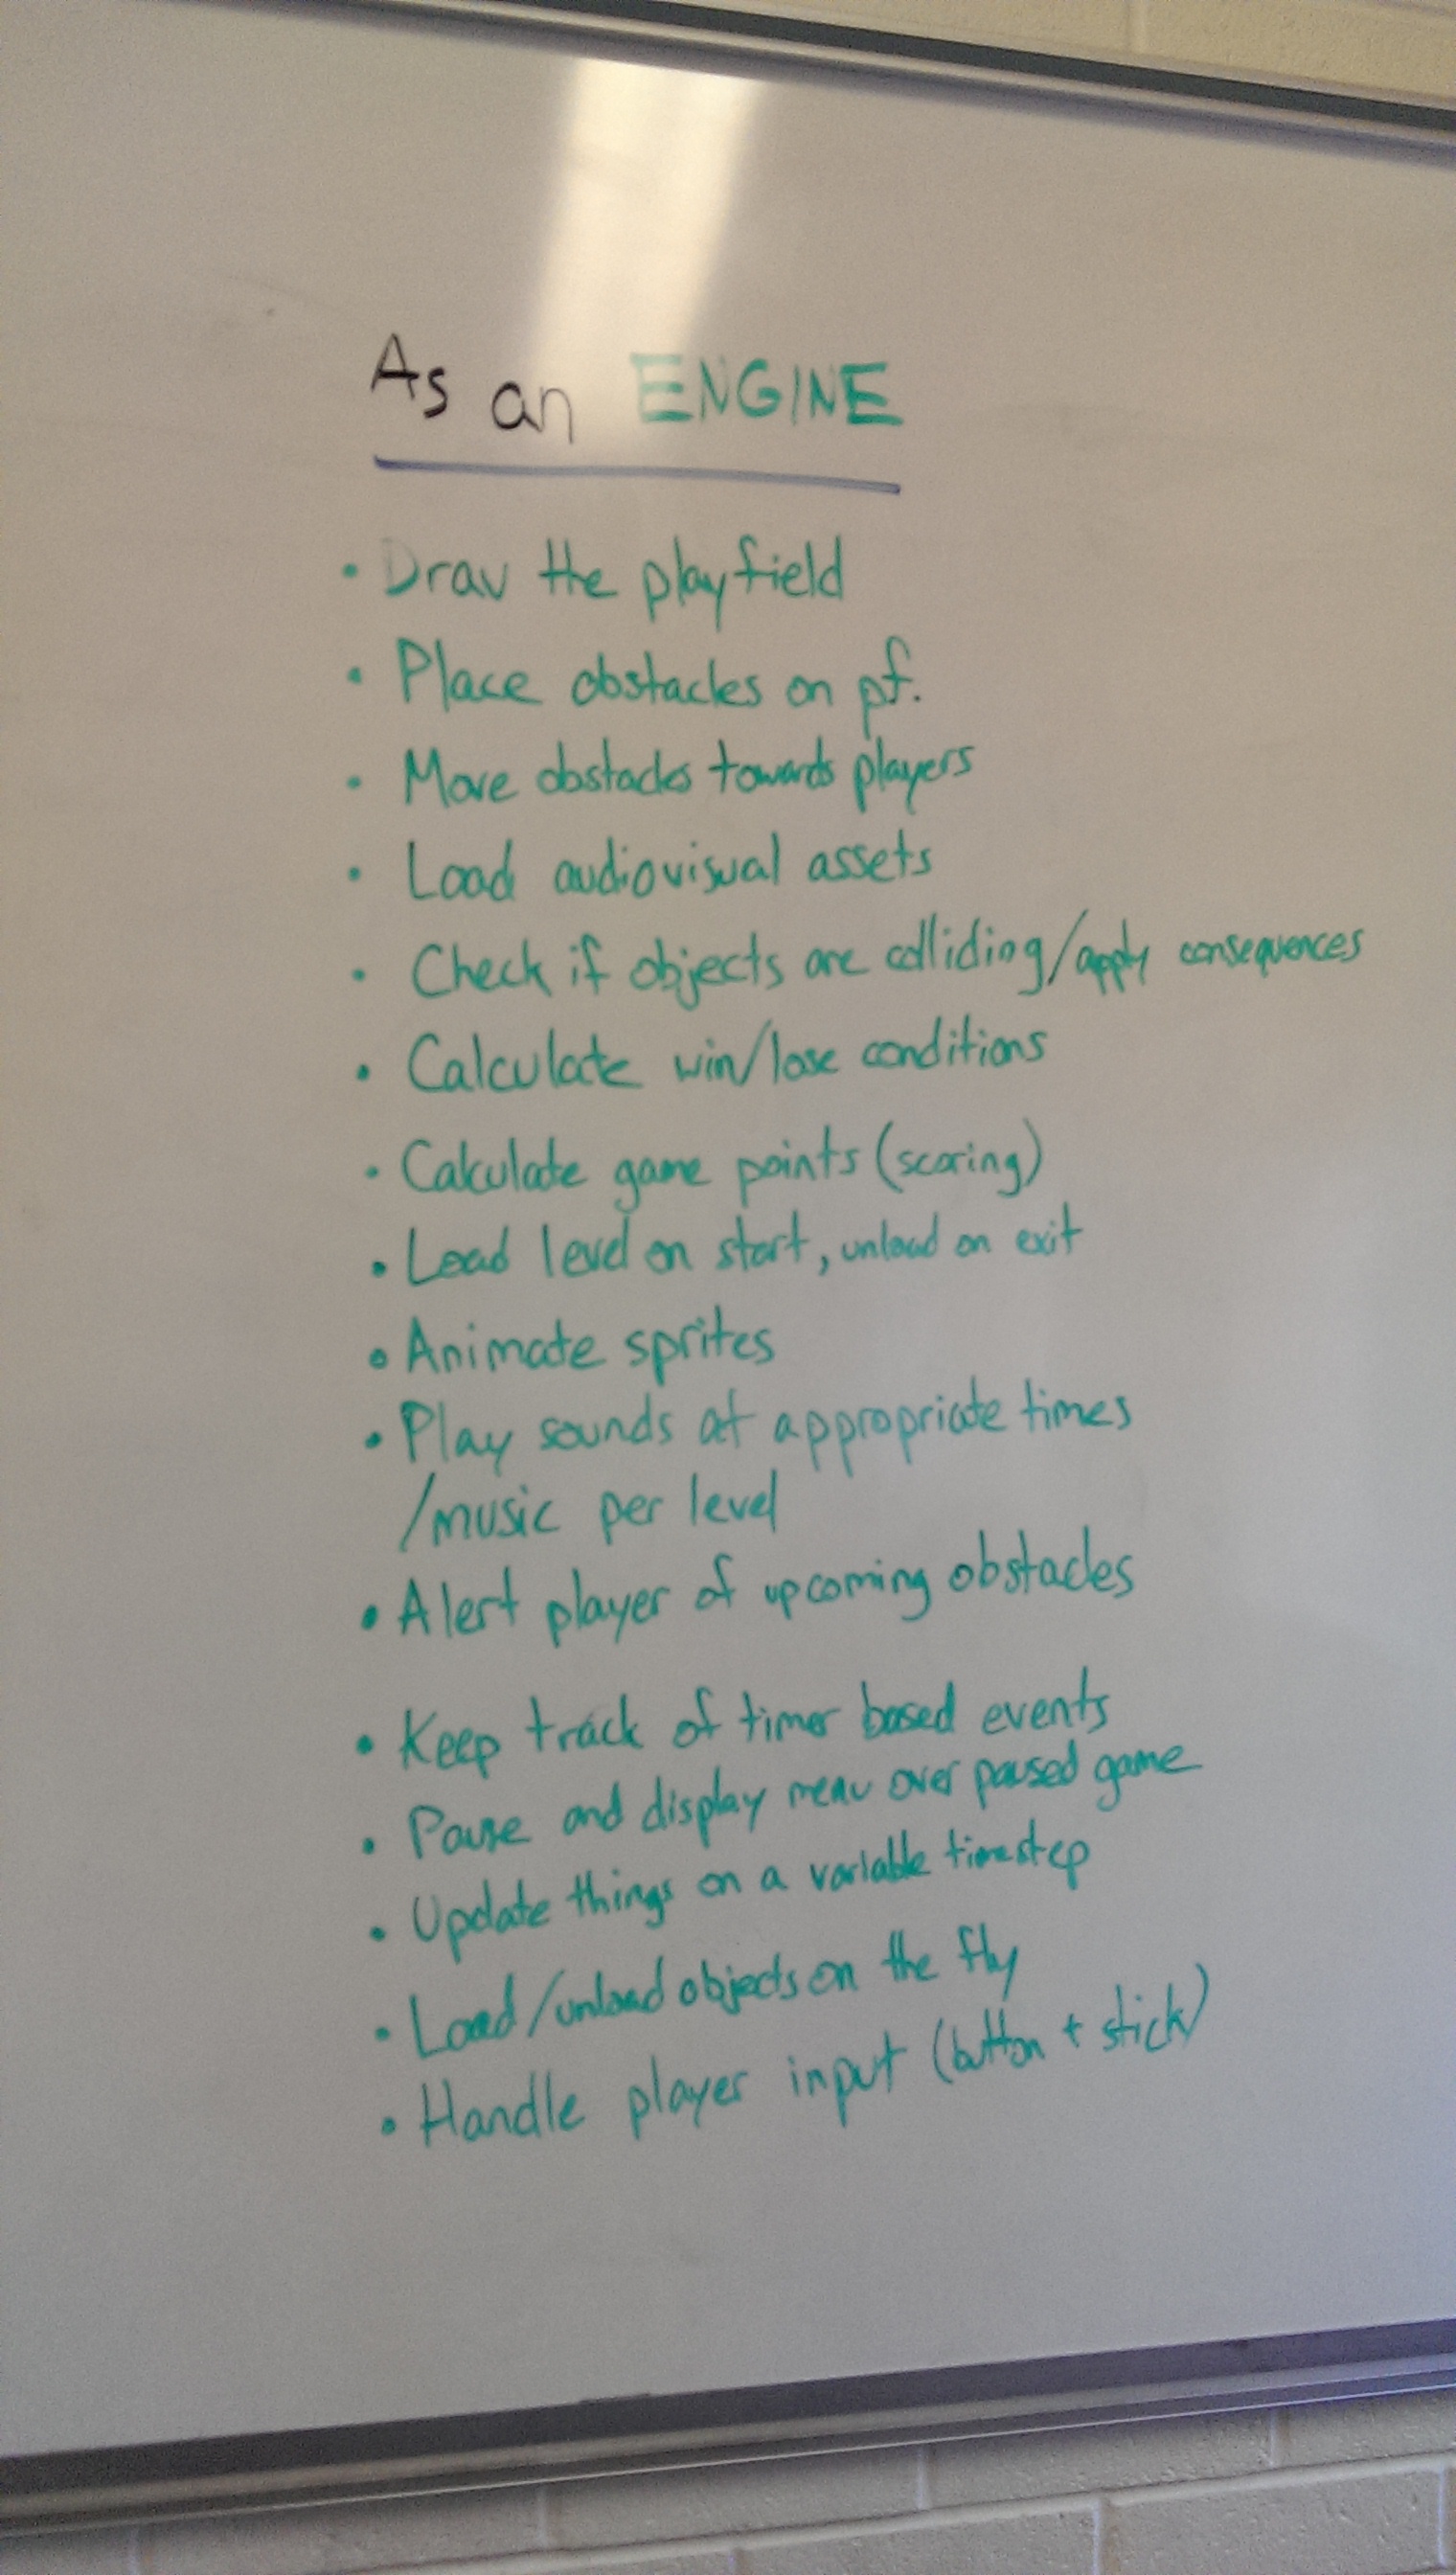 As an ENGINE
• Draw the playfield
• Place obstacles on pf.
• Move obstacles towards players
• Load audiovisual assets
• Check if objects are colliding/apply consequences
• Calculate win/lose conditions
• Calculate game points (scoring)
• Load level on start, unload on exit
• Animate sprites
• Play sounds at appropriate times
/music per level
• Alert player of upcoming obstacles
• Keep track of timer based events
• Pause and display menu over paused game
• Update things on a variable timestep
• Load/unload objects on the fly
• Handle player input (button + stick)